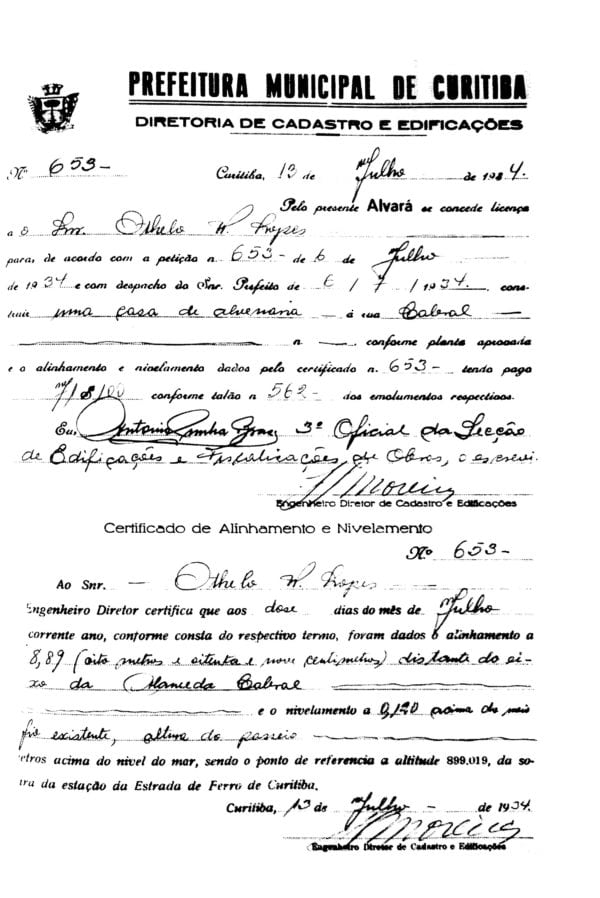 PREFEITURA MUNICIPAL DE CURITIBA
DIRETORIA DE CADASTRO E EDIFICAÇÕES
Nº 653- Curitiba, 13 de Julho de 1934.
Pelo presente Alvará se concede licença
a o Snr. Othelo W. Lopes
para, de acordo com a petição n. 653- de 6 de Julho
de 1934 e com despacho do Snr. Prefeito de 6 / 7 / 1934, cons-
truir uma casa de alvenaria — á rua Cabral —
n. — conforme planta aprovada
e o alinhamento e nivelamento dados pelo certificado n. 653- tendo pago
conforme talão n 562- dos emolumentos respectivos.
Eu, Antonio 3º Oficial da Secção
de Edificações e Fiscalizações de Obras, o escrevi.
Moreira
Engenheiro Diretor de Cadastro e Edificações
Certificado de Alinhamento e Nivelamento
Nº 653-
Ao Snr. — Othelo W. Lopes
Engenheiro Diretor certifica que aos dose dias do mês de Julho
corrente ano, conforme consta do respectivo termo, foram dados o alinhamento a
8,89 (oito metros e oitenta e nove centimetros) distante do ei-
xo da Alameda Cabral
e o nivelamento a 0,120 acima do meio
fio existente, altura do passeio
etros acima do nivel do mar, sendo o ponto de referencia a altitude 899.019, da so-
ira da estação da Estrada de Ferro de Curitiba.
Curitiba, 13 de Julho - de 1934.
Moreira
Engenheiro Diretor de Cadastro e Edificações